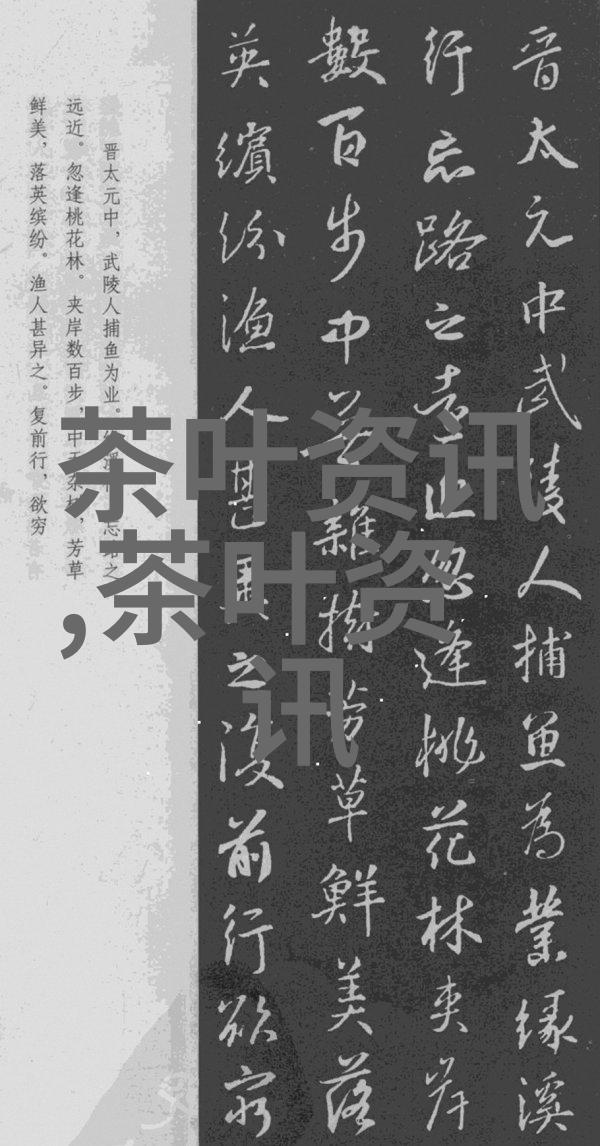 晋太元中武陵人捕魚為業緣溪
行忘路之遠近忽逢桃花林夾岸
數百步中無雜樹芳草鮮美落
英繽紛漁人甚異之復前行欲窮
晋太元中，武陵人捕鱼为业。溪忘路之
远近。忽逢桃花林。夹岸数百步，中无杂树，芳草
鲜美，落英缤纷。渔人甚异之。复前行，欲穷
茶叶资讯
,茶叶资
讯